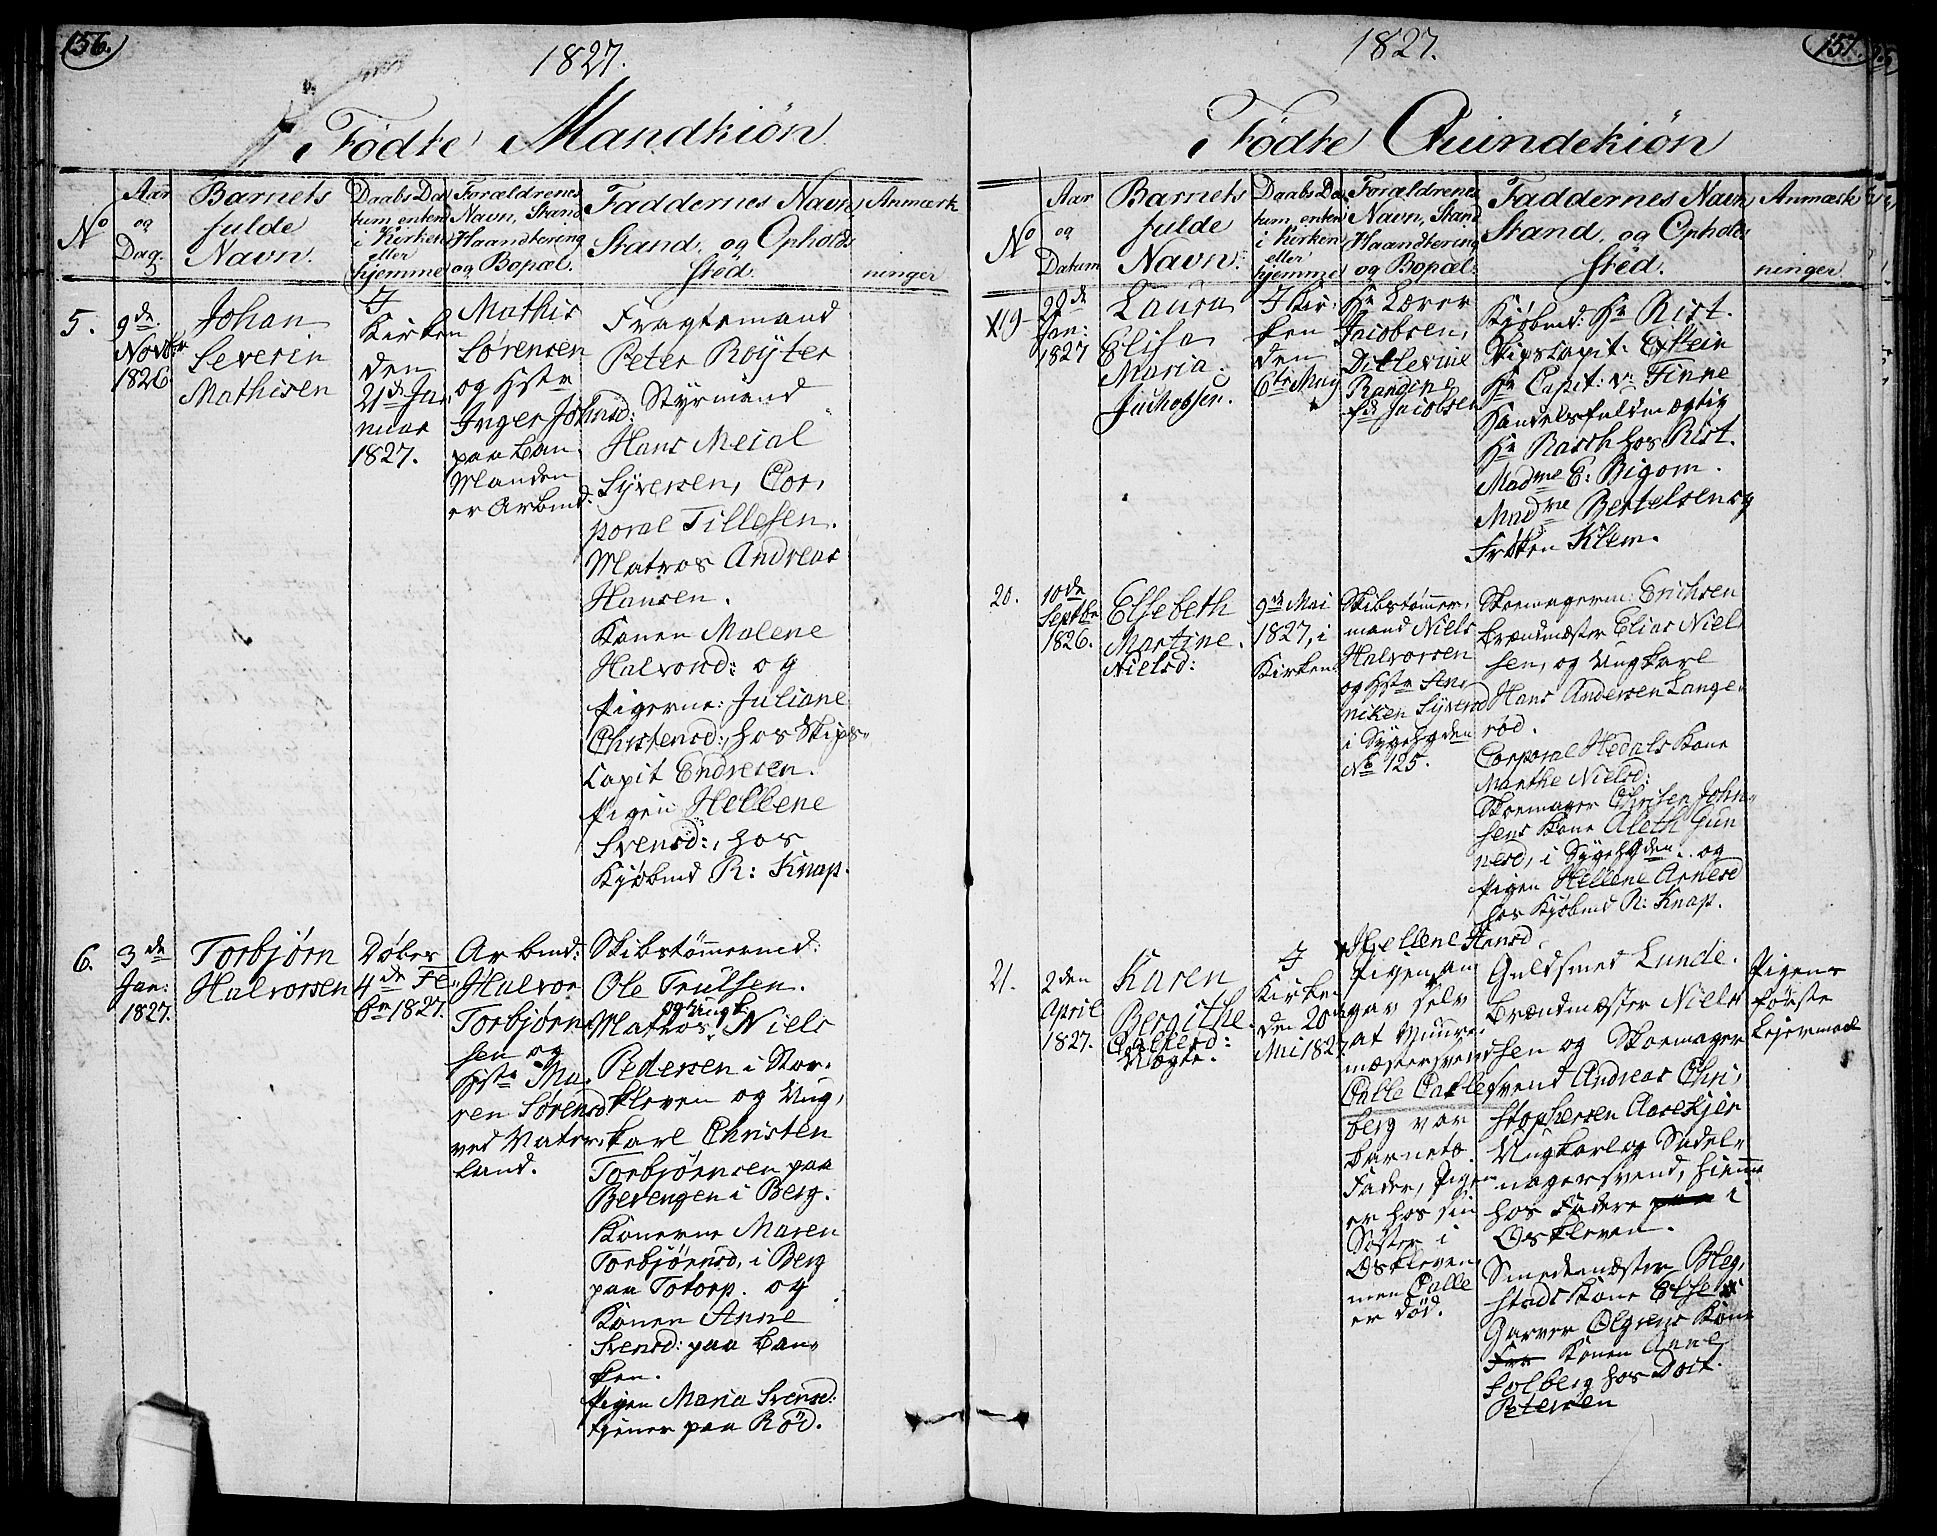 156.
1827.
Födte Mandkiön
No
Aar
og
Dag.
Barnets
fulde
Navn.
Daabs Da
tum, enten
i Kirken
eller
hjemme
Forældrenes
Navn, Stand
Haandtering
og Bopæl.
Faddernes Navn,
Stand, og Opholds
sted.
Anmærk
ninger
5.
9de
Novbr
1826
Johan
Severin
Mathisen
I
Kirken
den
21de Ja
nuar
1827.
Mathis
Sörensen
og Hstr
Inger Johnsd:
paa Ban.
Manden
er Arbmd.
Fragtemand
Peter Röyter
Styrmand
Hans Meial
Syversen, Cor,
poral Tillesen.
Matros Andreas
Hansen.
Konen Malene
Halvorsd: og
Pigerne: Juliane
Christensd:, hos Skips-
Capit Endresen.
Pigen Hellene
Svensd:, hos
Kjöbmd R: Knap.
6.
3de
Jan:
1827.
Torbjörn
Halvorsen
Döbes
4de Fe
br 1827.
Arbmd:
Halvor
Torbjörn
sen og
Hstr Ma,
ren Sörensd
ved Vater,
land.
Skibstömmermd:
Ole Trulsen.
og Ungk
Matros, Niels
Pedersen i Stor,
kleven og Ung,
karl Christen
Torbjörnsen paa
Bevengen i Berg.
Konerne Maren
Torbjörnsd, i Berg
paa Totorp. og
Konen Anne
Svensd: paa Ban,
ken.
Pigen Maria Svensd:
tjener paa Röd.
157.
1827.
Födte Quindekiön
No
Aar
og
Datum
Barnets
fulde
Navn.
Daabs Da
tum, enten
i Kirken
eller
hjemme
Forældrenes
Navn, Stand
Haandtering
og Bopæl.
Faddernes Navn,
Stand, og Opholds
sted.
Anmærk
ninger
X19
29de
Jan:
1827
Laura
Elisa
Maria
Jachobsen.
I Kir,
ken
den
6te May
Hr Lærer
Jacobsen,
Ditlevine
Randine
fd Jacobsen
Kjöbmd: Hr Rist.
Skipscapit: Exstein
Hr Capit: v: Finne
Handelsfuldmægtig
Hr Rasch hos Rist.
Madme E: Bigom.
Madme Bertelsen og
Fröken Klem.
20.
10de
Septbr
1826.
Elsebeth
Martine
Nielsd:
9de Mai
1827, i
Kirken
Skibstömmer,
mand Niels
Halvorsen
og Hstr An
niken Syversd
i Sygehgden
No 125.
Skoemagerm: Erichsen
Brændmester Elias Niel
sen, og Ungkarl
Hans Andersen Lange-
röd.
Corporal Hedals Kone
Marthe Nielsd:
Skoemager Christen John-
sens Kone Aleth Gun
nersd, i Sygehgden. og
Pigen Hellene Arnesd
hos Kjöbmd R: Knap.
21.
2den
April
1827.
Karen
Bergithe
Callesd:
Uægte.
I
Kirken
den 20
Mai 1827
Hellene Hansd
Pigen an
gav selv
at Muur,
mestersvend
Calle Calles
berg var
barnets
Fader, Pigen
er hos sin
Söster i
Oskleven,
men Calle
er död.
Guldsmed Lunde.
Brændmester Niels
sen og Skoemager
svend Andreas Chri,
stophersen Aasekjer
Ungkarl og Sadel-
magersvend, hiemme
hos Fadere i
Oskleven.
Smedemester Bleg,
stads Kone Else
Garver Olgrens Kone
Konen Anne
Solberg hos Doct.
Petersen
Pigens
förste
Lejermaal